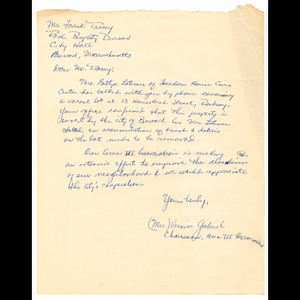 Mr. Frank Tracy
Real Property Board
City Hall
Boston, Massachusetts
Dear Mr. Tracy:
Mrs. Pattye of Freedom House Civic
Center has talked with you by phone concerning
a vacant lot at 13 Street, Roxbury.
Your office confirmed that this property is
owned by the city of Boston. As Mrs.
stated, an accumulation of trash & debris
on the lot needs to be removed.
Our Area III Association is making
an intensive effort to improve the cleanliness
of our neighborhood & we would appreciate
the city's cooperation.
Yours truly,
(Mrs) Gabriel
Chairman, Area III